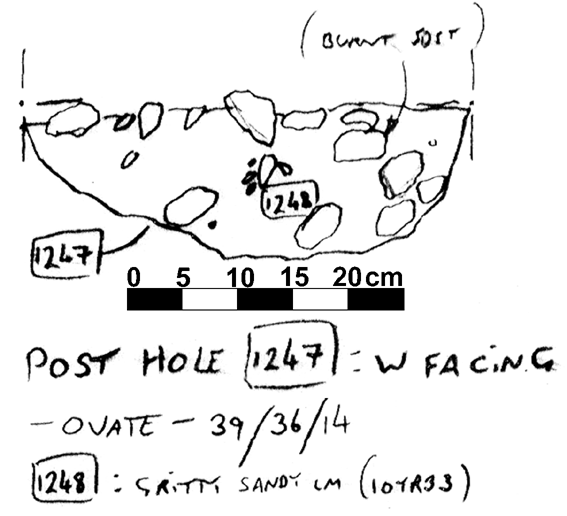 (BURNT SDST)
1248
1247
0 5 10 15 20cm
POST HOLE 1247 : W FACING
- OVATE - 39/36/14
1248 : GRITTY SANDY LM (10YR33)